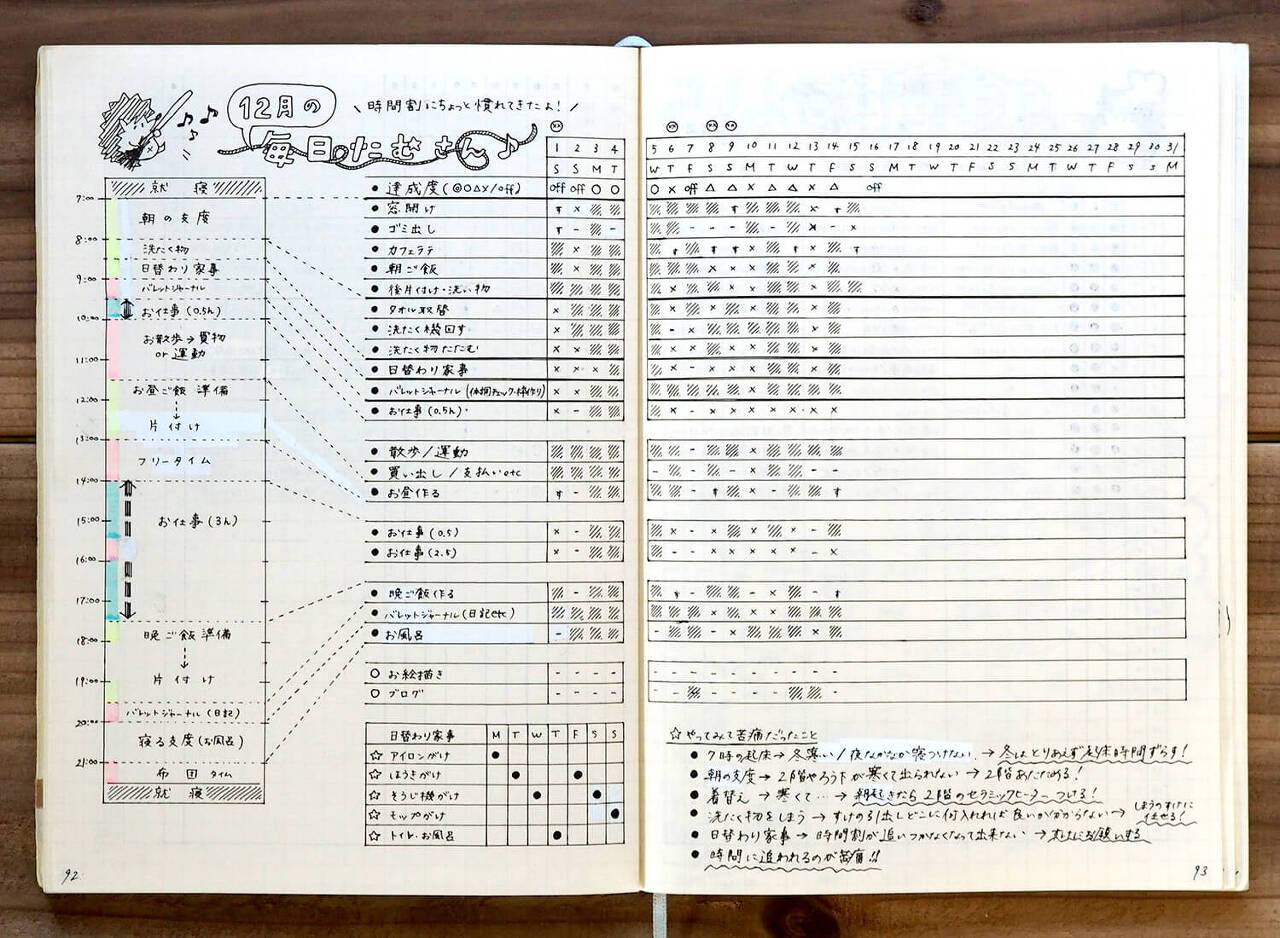 12月の
毎日のたむさん♪
\ 時間割にちょっと慣れてきたよ! /
就寝
7:00
朝の支度
8:00
洗たく物
日替わり家事
9:00
バレットジャーナル
お仕事(0.5h)
10:00
お散歩→買物
or 運動
11:00
お昼ご飯 準備
12:00
↓
片付け
13:00
フリータイム
14:00
お仕事(3h)
15:00
16:00
17:00
晩ご飯準備
18:00
↓
片付け
19:00
バレットジャーナル(日記)
20:00
寝る支度(お風呂)
21:00
布団タイム
就寝
1 2 3 4
S S M T
● 達成度(◎○△×/off) off off ○ ○
● 窓開け
● ゴミ出し
● カフェラテ
● 朝ご飯
● 後片付け・洗い物
● タオル取替
● 洗たく機回す
● 洗たく物たたむ
● 日替わり家事
● バレットジャーナル(体調チェック・枠作り)
● お仕事(0.5h)
● 散歩/運動
● 買い出し/支払いetc
● お昼作る
● お仕事(0.5)
● お仕事(2.5)
● 晩ご飯作る
● バレットジャーナル(日記etc)
● お風呂
○ お絵描き
○ ブログ
日替わり家事 M T W T F S S
☆ アイロンがけ
☆ ほうきがけ
☆ そうじ機がけ
☆ モップがけ
☆ トイレ・お風呂
92
5 6 7 8 9 10 11 12 13 14 15 16 17 18 19 20 21 22 23 24 25 26 27 28 29 30 31
W T F S S M T W T F S S M T W T F S S M T W T F S S M
○ × off △ △ × △ △ × △ off
☆やってみて苦痛だったこと
● 7時の起床→冬寒い/夜なかなか寝つけない →冬はとりあえず起床時間ずらす!
● 朝の支度→2階やろう下が寒くて出られない→2階あたためる!
● 着替え →寒くて…→朝起きたら2階のセラミックヒーターつける!
● 洗たく物をしまう→すけの引出しどこに何入れれば良いか分からない→しまうのすけに任せる!
● 日替わり家事→時間割が追いつかなくなって出来ない→すけにお願いする
● 時間に追われるのが苦痛!!
93